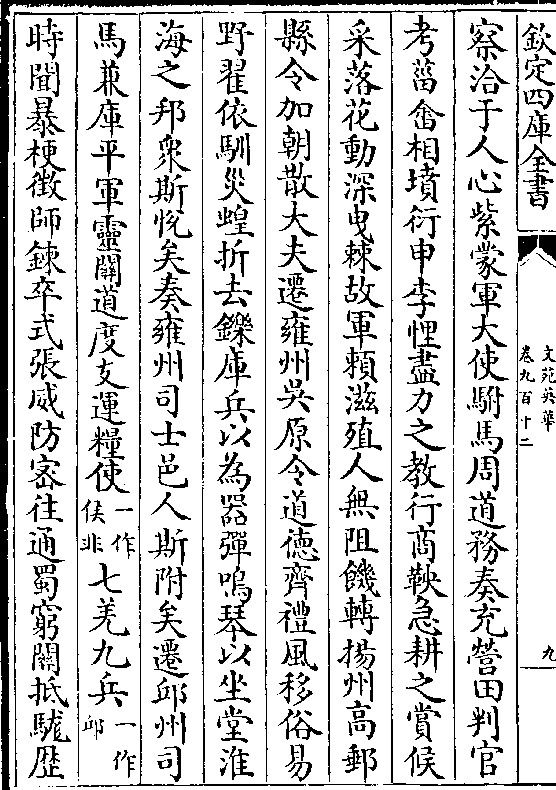 欽定四庫全書
文苑英華
卷九百十二
九
察洽于人心紫蒙軍大使駙馬周道務奏充營田判官
考菑畬相墳衍申李悝盡力之教行商鞅急耕之賞候
采落花動深曳棘故軍頼滋殖人無阻饑轉揚州高郵
縣令加朝散大夫遷雍州吳原令道德齊禮風移俗易
野翟依馴災蝗折去鑠庫兵以為器彈鳴琴以坐堂淮
海之邦衆斯悅矣奏雍州司士邑人斯附矣遷邱州司
馬兼庫平軍靈關道度支運糧使一作侯非七羌九兵一作邱
時聞暴梗徵師鍊卒式張威防密往通蜀窮關抵駹歴